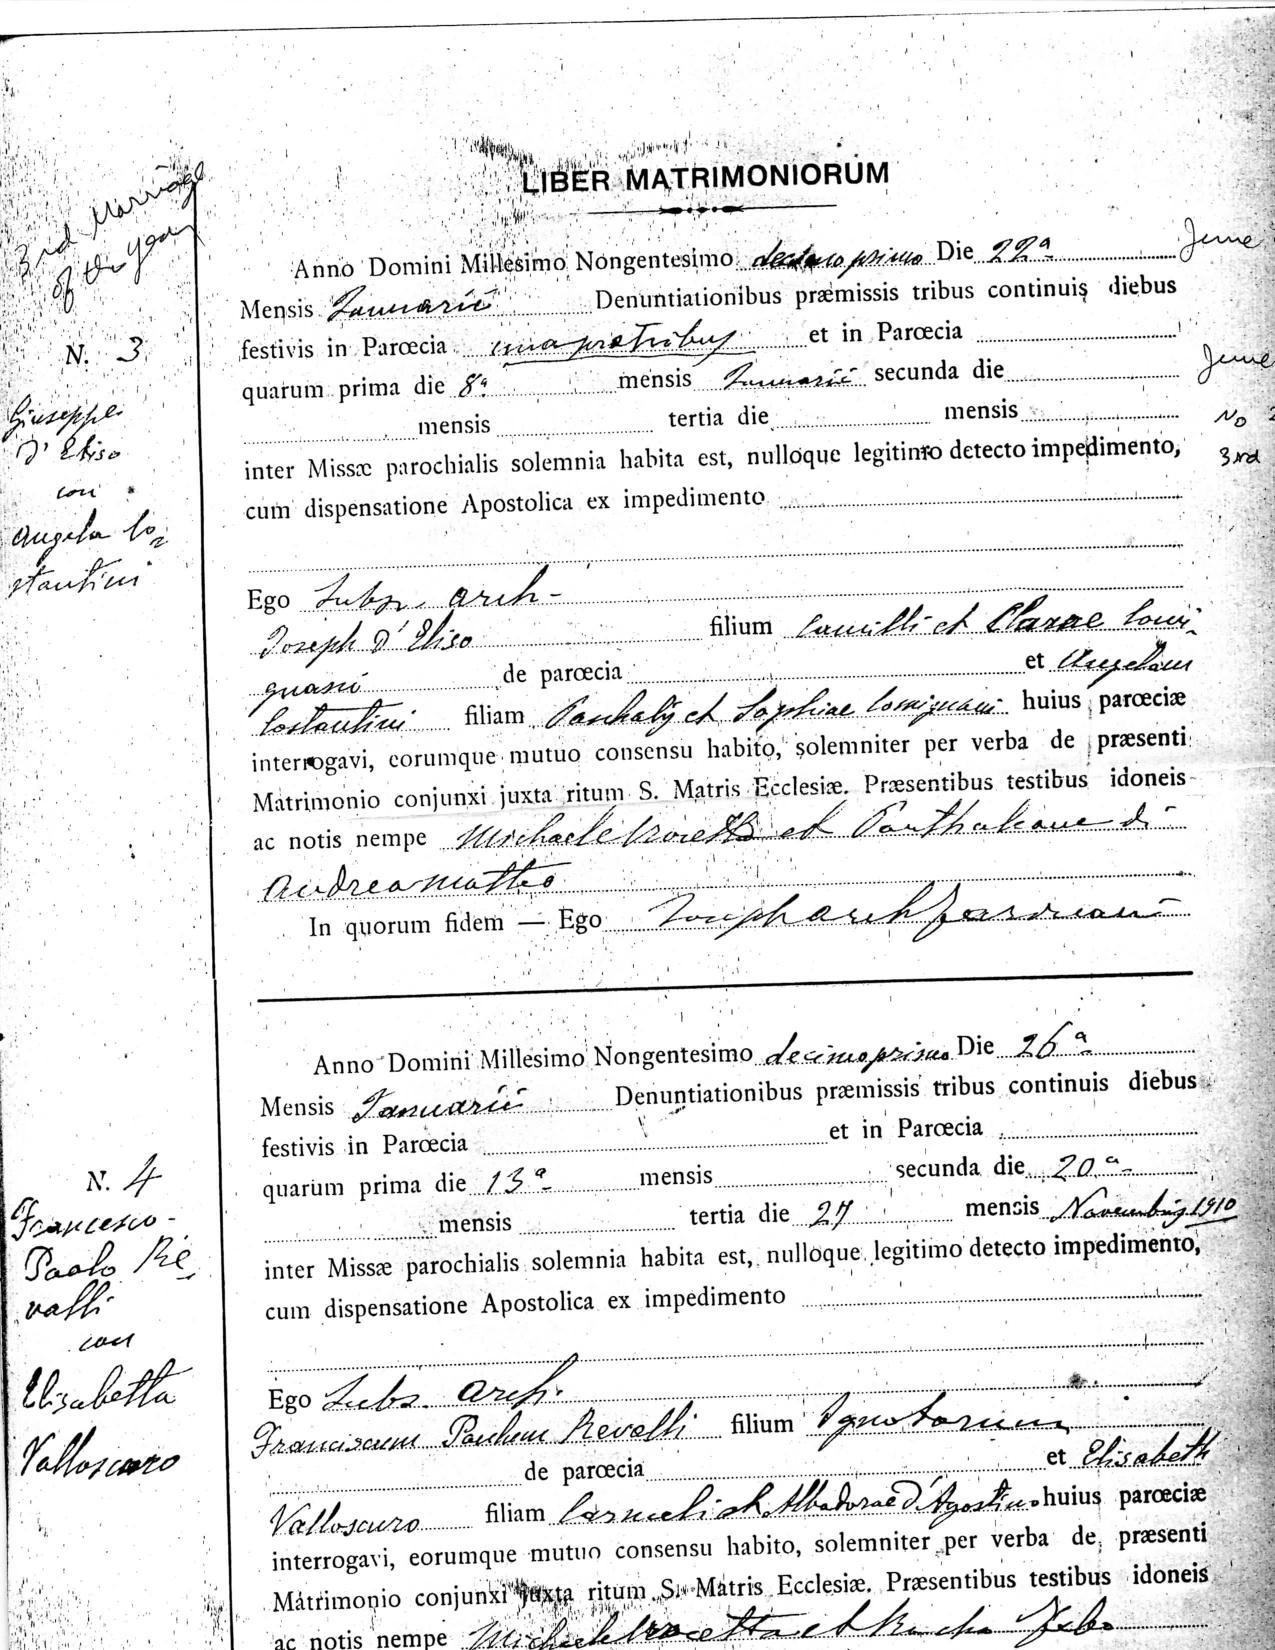 LIBER MATRIMONIORUM
3rd Marriage
of the year
Anno Domini Millesimo Nongentesimo decimo primo Die 22ª
June
Mensis Januarii Denuntiationibus præmissis tribus continuis diebus
festivis in Parœcia una pro tribus et in Parœcia
N. 3
quarum prima die 8ª mensis Januarii secunda die
June
mensis tertia die mensis
No
inter Missæ parochialis solemnia habita est, nulloque legitimo detecto impedimento,
3rd
cum dispensatione Apostolica ex impedimento
Giuseppe
D' Eliso
con
Angela Co
stantini
Ego Subs. arch-
Joseph D' Eliso filium Camilli et Clarae
de parœcia et Angelam
Costantini filiam Paschalis et Sophiae huius parœciæ
interrogavi, eorumque mutuo consensu habito, solemniter per verba de præsenti
Matrimonio conjunxi juxta ritum S. Matris Ecclesiæ. Præsentibus testibus idoneis
ac notis nempe Michaele et di
Andreamatteo
In quorum fidem — Ego Joseph Arch
Anno Domini Millesimo Nongentesimo decimo primo Die 26ª
Mensis Januarii Denuntiationibus præmissis tribus continuis diebus
festivis in Parœcia et in Parœcia
N. 4
quarum prima die 13ª mensis secunda die 20ª
mensis tertia die 27 mensis Novembris 1910
inter Missæ parochialis solemnia habita est, nulloque legitimo detecto impedimento,
cum dispensatione Apostolica ex impedimento
Francesco
Paolo Re
valli
con
Elisabetta
Valloscuro
Ego Subs. Arch.
Franciscum Paulum Revelli filium Ignotorum
de parœcia et Elisabeth
Valloscuro filiam Carmeli et Albadorae D'Agostino huius parœciæ
interrogavi, eorumque mutuo consensu habito, solemniter per verba de præsenti
Matrimonio conjunxi juxta ritum S. Matris Ecclesiæ. Præsentibus testibus idoneis
ac notis nempe Michaele et